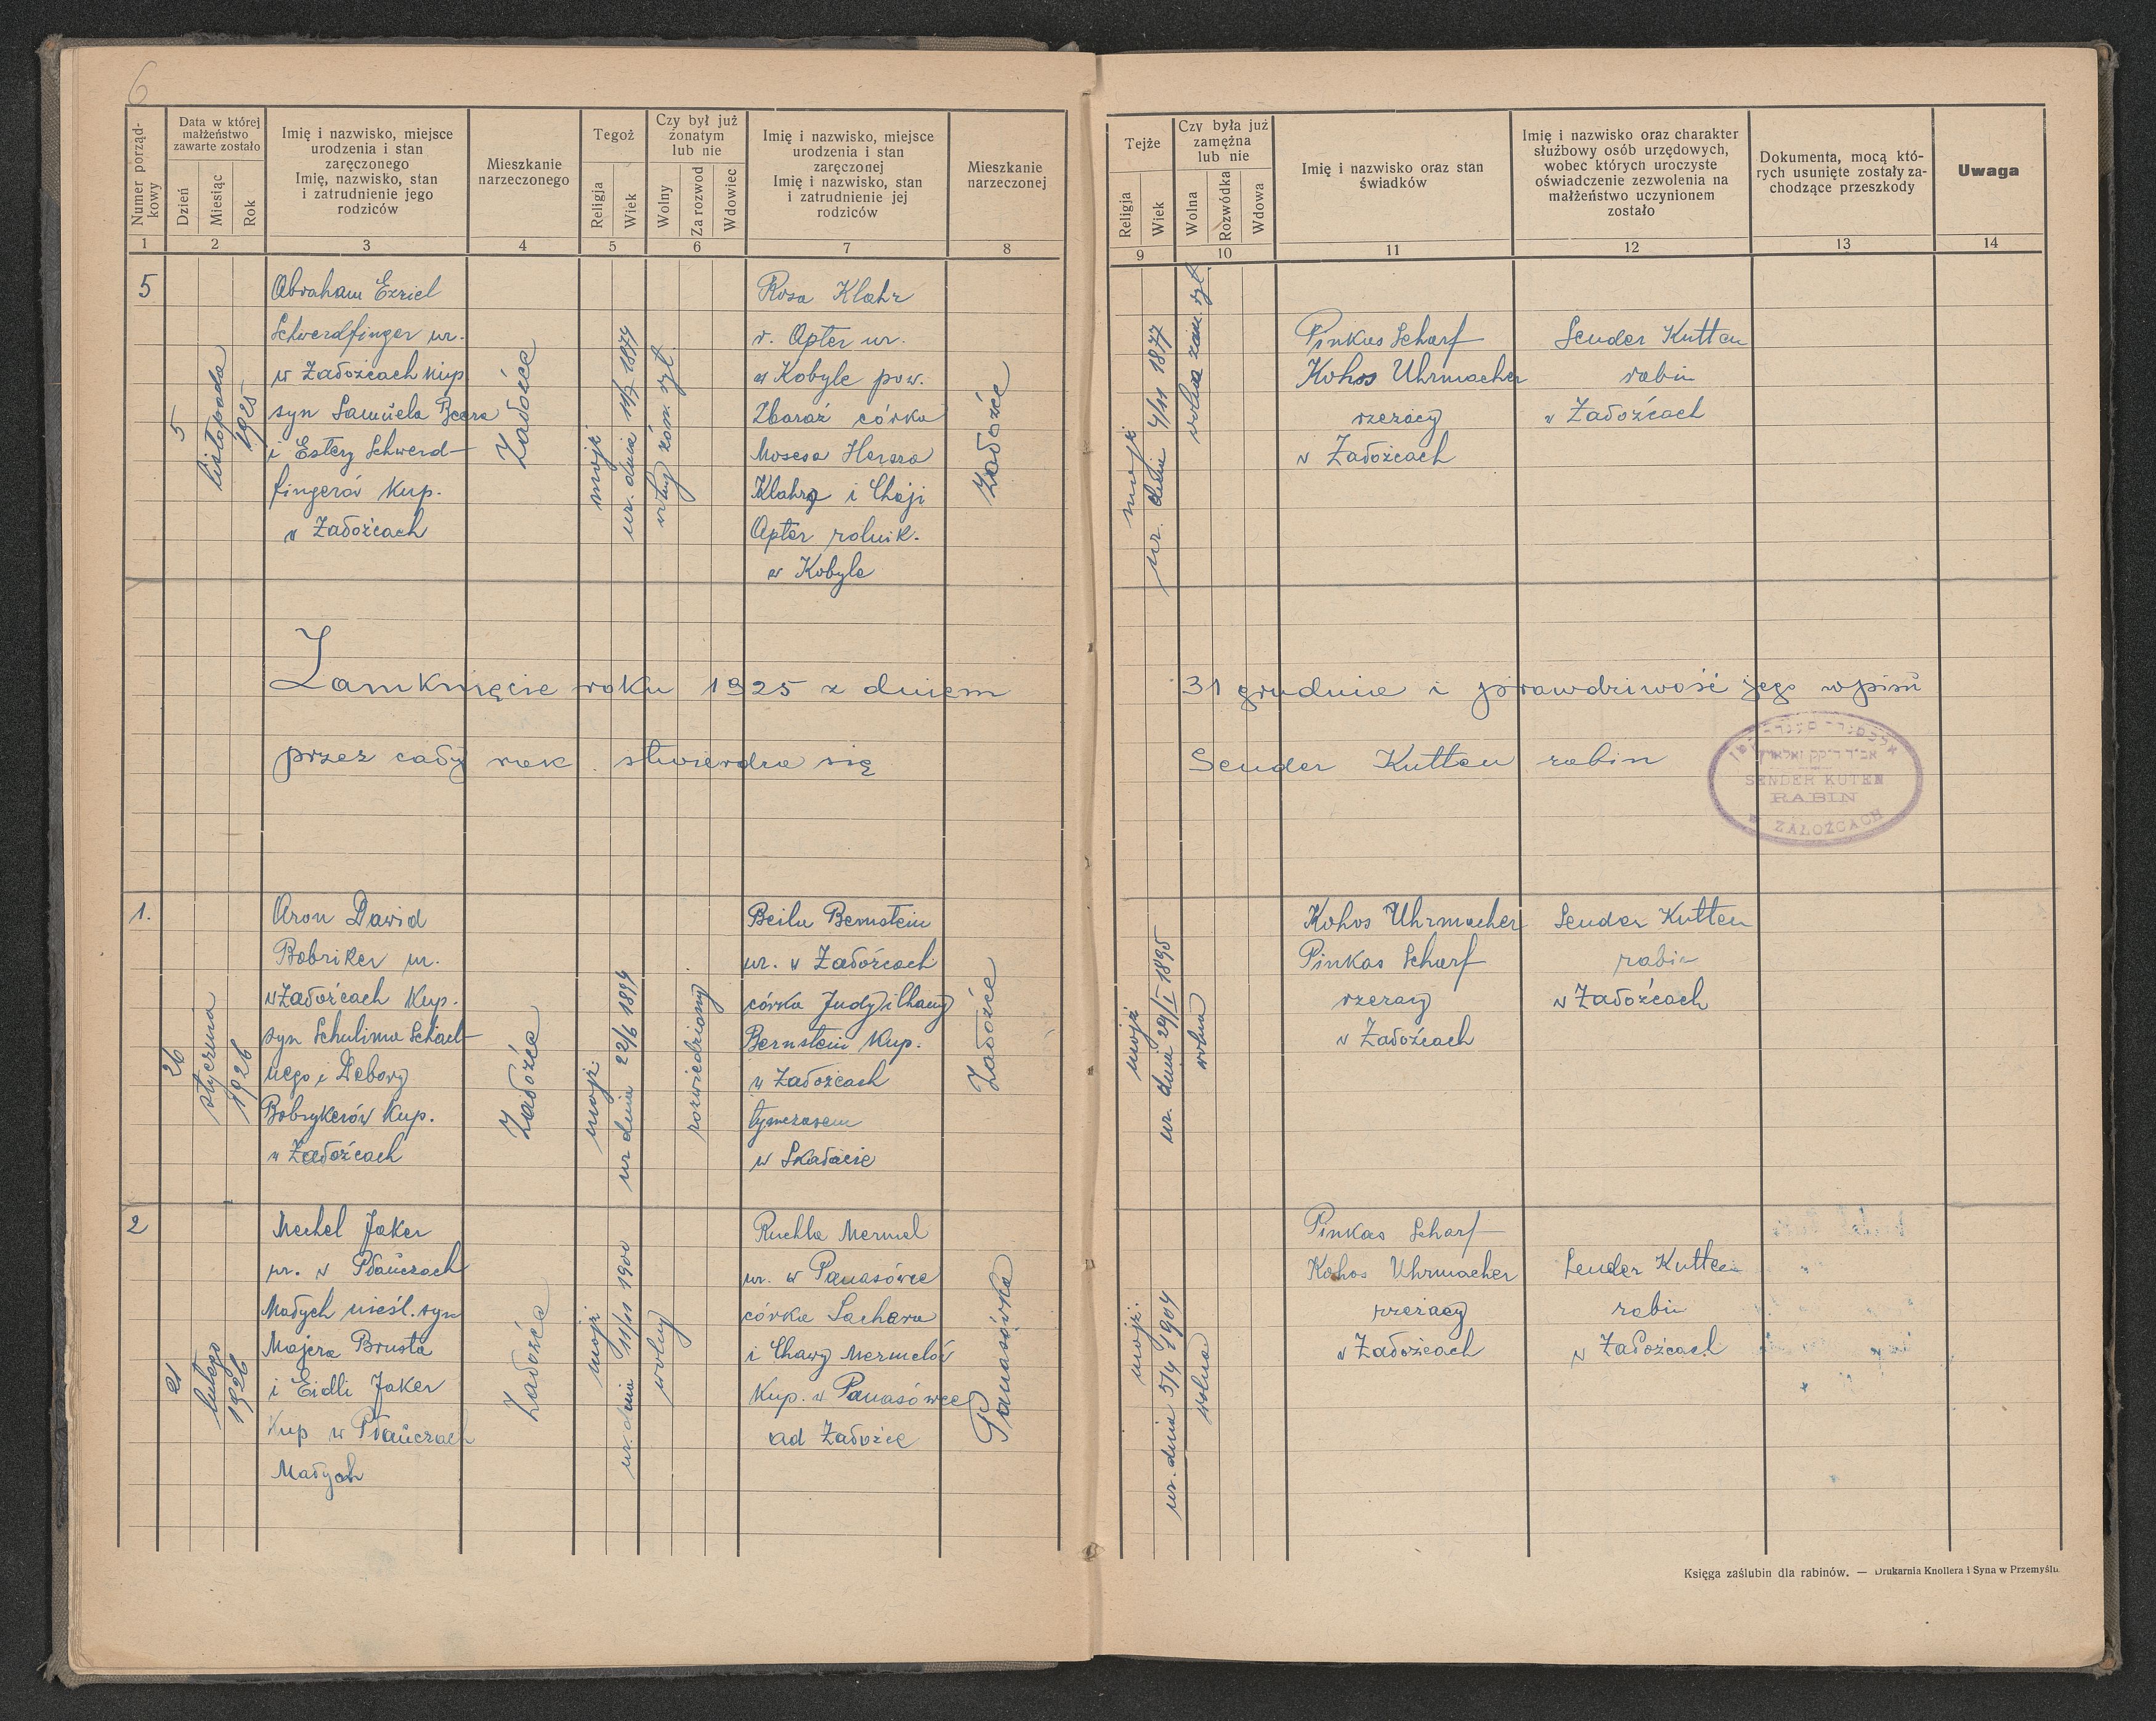 6
Numer porząd-
kowy
Data w której
małżeństwo
zawarte zostało
Dzień
Miesiąc
Rok
Imię i nazwisko, miejsce
urodzenia i stan
zaręczonego
Imię, nazwisko, stan
i zatrudnienie jego
rodziców
Mieszkanie
narzeczonego
Tegoż
Religja
Wiek
Czy był już
żonatym
lub nie
Wolny
Za rozwod
Wdowiec
Imię i nazwisko, miejsce
urodzenia i stan
zaręczonej
Imię i nazwisko, stan
i zatrudnienie jej
rodziców
Mieszkanie
narzeczonej
Tejże
Religja
Wiek
Czy była już
zamężna
lub nie
Wolna
Rozwódka
Wdowa
Imię i nazwisko oraz stan
świadków
Imię i nazwisko oraz charakter
służbowy osób urzędowych,
wobec których uroczyste
oświadczenie zezwolenia na
małżeństwo uczynionem
zostało
Dokumenta, mocą któ-
rych usunięte zostały za-
chodzące przeszkody
Uwaga
1 2 3 4 5 6 7 8 9 10 11 12 13 14
5
5
listopada
1925
Abraham Ezriel
Schwerdfinger ur.
w Założcach kup
syn Samuela Beera
i Estery Schwerd-
fingerów kup.
w Założcach
Założce
mojż
ur. dnia 11/7 1874
wolny żon. ryt.
Rosa Klahr
v. Apter ur.
w Kobyle pow.
Zbaraż córka
Mosesa Hersza
Klahra i Chaji
Apter rolnik.
w Kobyle
Założce
mojż
ur. dnia 4/11 1877
wolna zam. ryt.
Pinkas Scharf
Kohos Uhrmacher
rzezacy
w Założcach
Sender Kutten
rabin
w Założcach
Zamknięcie roku 1925 z dniem 31 grudnia i prawdziwość jego wpisu
przez cały rok stwierdza się Sender Kutten rabin
SENDER KUTEN
RABIN
w ZAŁOŹCACH
1.
26
stycznia
1926
Aron Dawid
Bobriker ur.
w Założcach kup.
syn Schulima Schach-
nego i Debory
Bobrykerów kup.
w Założcach
Założce
mojż.
ur dnia 22/6 1894
rozwiedziony
Beila Bernstein
ur. w Założcach
córka Judy i Chany
Bernstein kup.
w Założcach
tymczasem
w Skałacie
Założce
mojż
ur. dnia 29/I 1895
wolna
Kohos Uhrmacher
Pinkas Scharf
rzezacy
w Założcach
Sender Kutten
rabin
w Założcach
2
21
lutego
1926
Mechel Jaker
ur. w Płauczach
Małych nieśl. syn
Majera Brusta
i Eidli Jaker
kup w Płauczach
Małych
Założce
mojż
ur. dnia 11/11 1900
wolny
Ruchla Mermel
ur. w Panasówce
córka Sachara
i Chawy Mermelów
kup. w Panasówce
ad Założce
Panasówka
mojż.
ur. dnia 5/4 1904
wolna
Pinkas Scharf
Kohos Uhrmacher
rzezacy
w Założcach
Sender Kutten
rabin
w Założcach
Księga zaślubin dla rabinów. — Drukarnia Knollera i Syna w Przemyślu